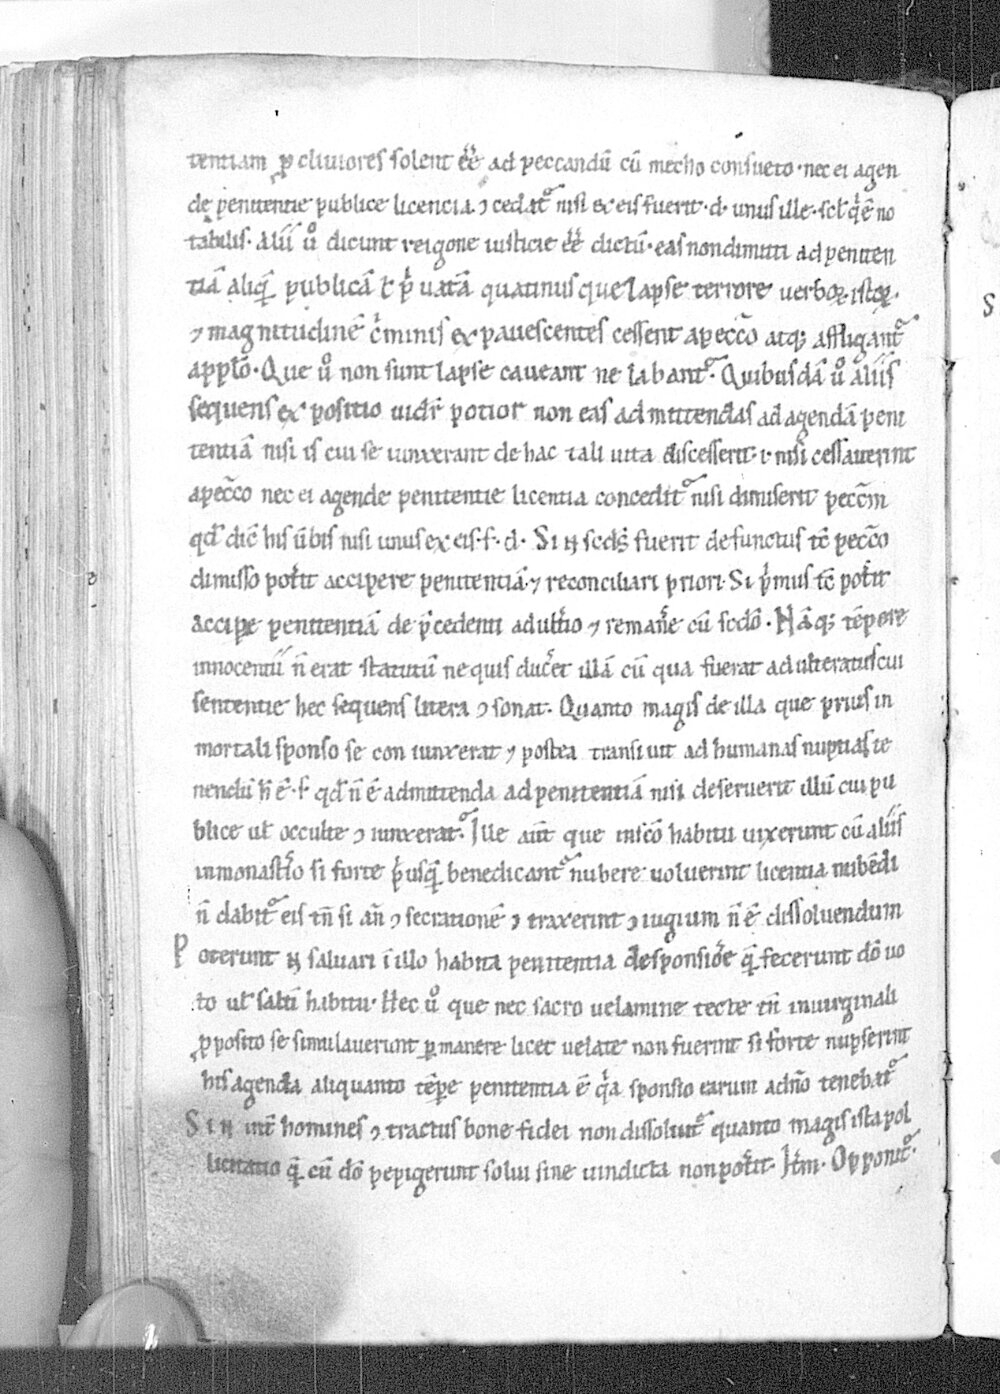 tentiam ꝓcliuiores solent ee̅ ad peccandū cū mecho consueto · nec ei agen
de penitentie publice licencia ꝯcedat᷑ nisi ex eis fuerit · d · unus ille · scl̄ q̇ ē no
tabilis · Alii u͛o dicunt reigone iusticie ee̅ dictū · eas non dimitti ad peniten
tiā aliqͣ̄ publicā ł pͥuatā quatinus que lapse terrore uerboꝝ istoꝝ ·
⁊ magnitudinē cͥminis expauescentes cessent a pecc̄o atqꝫ affligant᷑
a ppło · Que u͛o non sunt lapse caueant ne labant᷑ · Quibusdā u͛o aliis
sequens expositio uidr̄ potior non eas admittendas ad agendā peni
tentiā nisi is cui se iunxerant de hac tali uita discesserit · i · nisi cessauerint
a pecc̄o nec ei agende penitentie licentia concedit᷑ nisi dimiserit pecc̄m
qd̄ dic̄ his ūbis nisi unus ex eis · f · d · Sin scd̄s fuerit defunctus tc̄ pecc̄o
dimisso pot͛it accipere penitentiā · ⁊ reconciliari priori · Si pͥmus tc̄ pot͛it
accipe penitentiā de p̄cedenti adult͛io ⁊ reman͛e cū scd̄o · Nāqꝫ tēpore
innocentii n̄ erat statutū ne quis duc͛et illā cū qua fuerat adulteratus cui
sententie hec sequens litera ꝯsonat · Quanto magis de illa que prius in
mortali sponso se coniunxerat ⁊ postea transiuit ad humanas nuptias te
nendū h̄ ē · f qd̄ n̄ ē admittenda ad penitentiā nisi deseruerit illū cui pu
blice ul̄ occulte ꝯiunxerat᷑ Ille aūt que in sc̄o habitu uixerunt cū aliis
in monast͛io si forte pͥusqͣ̄ benedicant᷑ nubere uoluerint licentia nubēdi
n̄ dabit᷑ eis tn̄ si an̄ ꝯsecrationē ꝯtraxerint ꝯiugium n̄ ē dissoluendum
Poterunt n̄ saluari ī illo habita penitentia de sponsiōe qͣ̄ fecerunt dō uo
to ul̄ saltī habitu · Hec u͛o que nec sacro uelamine tecte tn̄ in uirginali
ꝓposito se simulauerunt ꝑmanere licet uelate non fuerint si forte nupserint
his agenda aliquanto tēpe penitentia ē qͥa sponsio earum a dn̄o tenebat᷑
Sin int͛ homines ꝯtractus bone fidei non dissoluit᷑ quanto magis ista pol
licitatio qͣ̄ cū dō pepigerunt solui sine uindicta non pot͛it · It̄m · Opponit᷑ ·